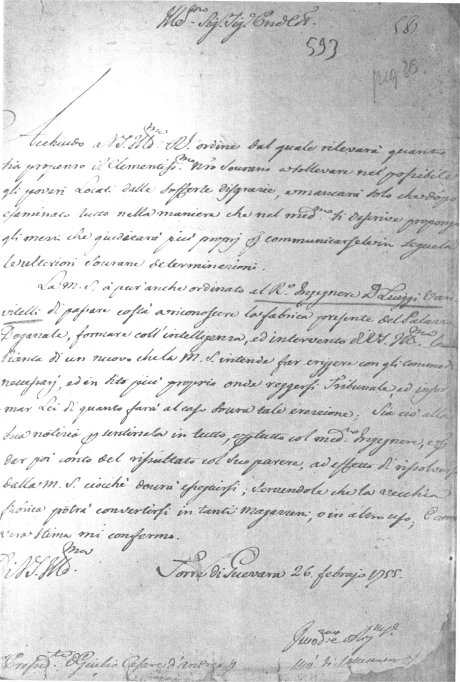 Ill.mo Sig. Sig.
593
58
pag 28.
Acchiudo a V.S. Ill.ma R. ordine dal quale rilevarà quanto
sia propenso il Clementiss.mo nro Sourano a sollevare nel possibile
gli poveri Locati dalle sofferte disgrazie, e mancarà solo che dopo
esaminato tutto nella maniera che nel med.mo si descrive proponga
gli mezzi che giudicarà più proprj p communicarsele in seguela
le ulteriori Sourane determinazioni.
La M. S. à pur anche ordinato al R.o Ingegnere D. Luiggi Van
vitelli di passare costà a riconoscere la fabrica presente del Palazzo
Doganale, formare coll'intelligenza, ed intervento di V.S. Ill.ma la
Pianta di un nuovo che la M. S. intende far erigere con gli commodi
necessarj, ed in sito più proprio onde reggersi Tribunale ed infor
mar Lei di quanto farà al caso doura tale erezione; Sia ciò alla
sua notizia p sentirsela in tutto, e p tutto col med.mo Ingegnere, e p
dar poi conto del risultato col Suo parere, ad effetto di risolversi
dalla M. S. ciocchè dourà eseguirsi; Servendole che la vecchia
fabrica potrà convertirsi in tanti Magazzeni, o in altro uso, E con
vera stima mi confermo.
Di V.S. Ill.ma
Torre di Guevara 26. febrajo 1755.
Presid.te D. Giulio Cesare d'Andrea